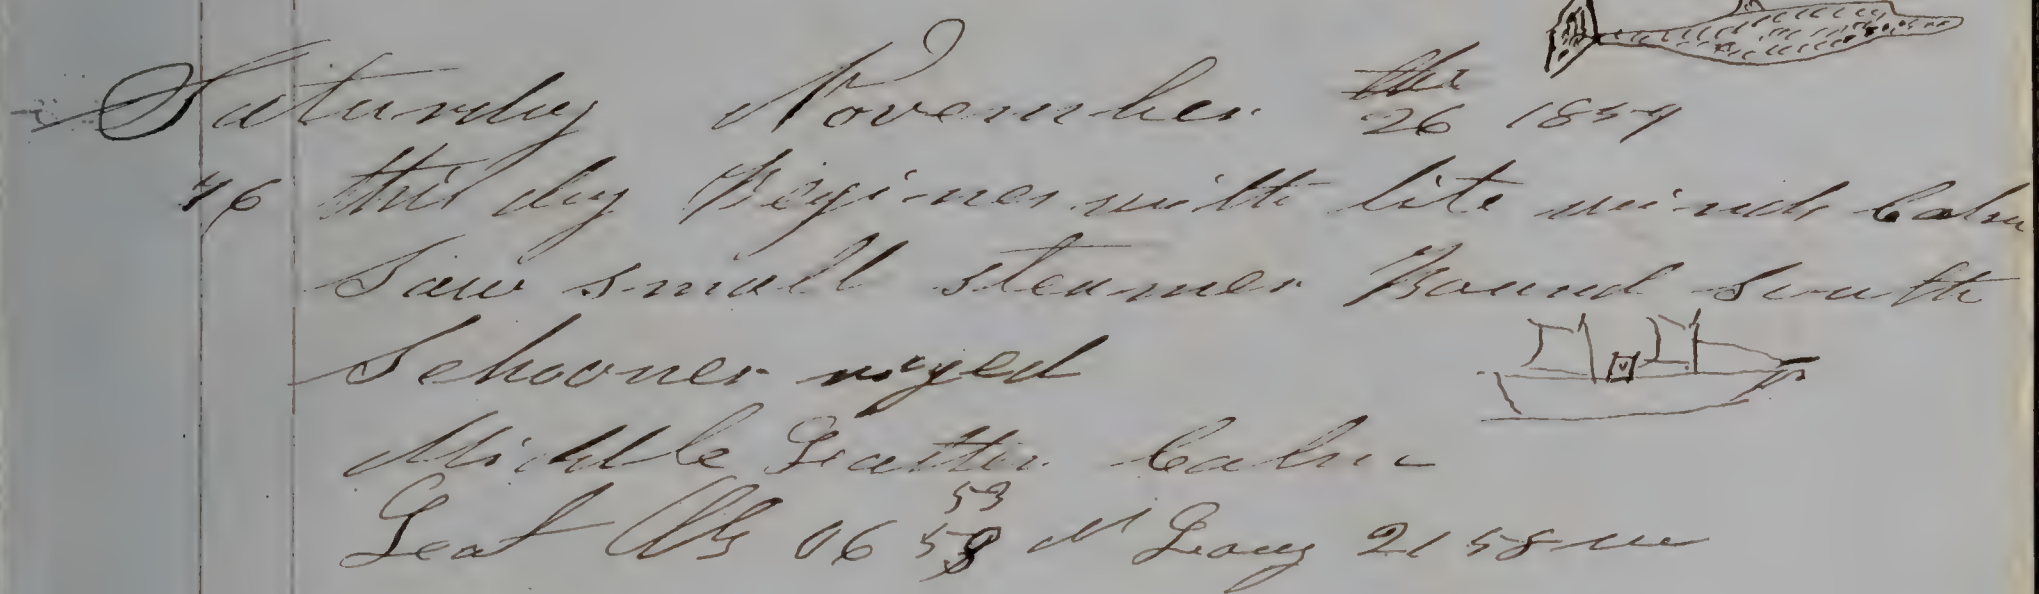 Saturday November the 26 1859
76 this day Begines with lite winds Calm
Saw small steamer Bound South
Schooner riged
Middle Latter Calm
Leat Obs 06 53 N Long 21 58 W